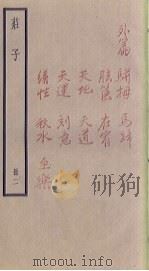 外篇
駢拇 馬蹄
胠篋 在宥
天地 天道
天運 刻意
繕性 秋水 至樂
莊子
冊二